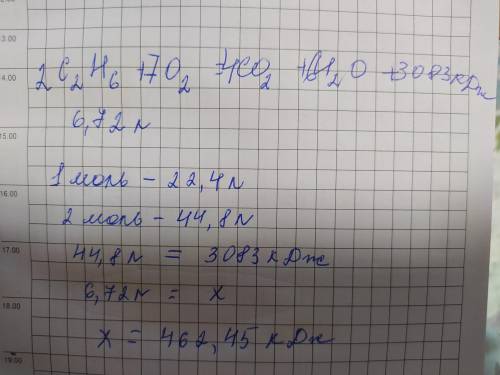 13.00
2C2H6 + 7O2 = 4CO2 + 6H2O + 3083 кДж
14.00
6,72 л
15.00
1 моль - 22,4 л
16.00
2 моль - 44,8 л
17.00
44,8 л = 3083 кДж
6,72 л = x
18.00
x = 462,45 кДж
19.00